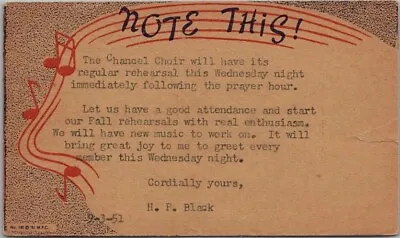 NOTE THIS!
The Chancel Choir will have its
regular rehearsal this Wednesday night
immediately following the prayer hour.
Let us have a good attendance and start
our Fall rehearsals with real enthusiasm.
We will have new music to work on. It will
bring great joy to me to greet every
member this Wednesday night.
Cordially yours,
H. P. Black
9-3-51